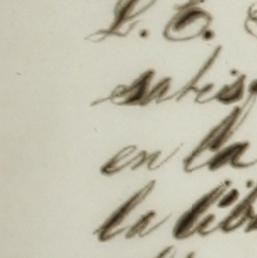 L. E.
satis
en la
la lib